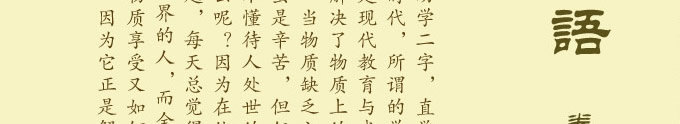 語
学二字，直
代，所谓的
现代教育与
解决了物质上
当物质缺乏
是辛苦，但
懂待人处世
呢？因为在
，每天总觉得
界的人，而
质享受又如
因为它正是